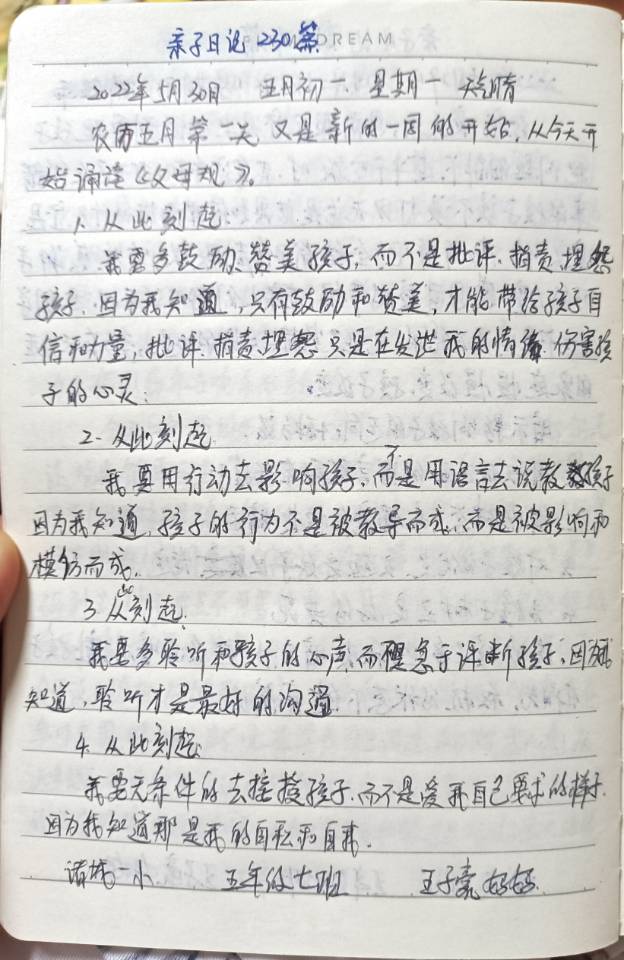 亲子日记230篇
DREAM
2022年5月30日 五月初一 星期一 天气晴
农历五月第一天 又是新的一周的开始,从今天开
始诵读《父母规》。
1. 从此刻起
我要多鼓励、赞美孩子,而不是批评、指责埋怨
孩子,因为我知道,只有鼓励和赞美,才能带给孩子自
信和力量,批评、指责埋怨只是在发泄我的情绪 伤害孩
子的心灵;
2. 从此刻起
我要用行动去影响孩子,而不是用语言去说教孩子
因为我知道,孩子的行为不是被教导而成,而是被影响和
模仿而成.
3. 从此刻起.
我要多聆听和孩子的心声,而 急于评断孩子,因为我
知道,聆听才是最好的沟通.
4. 从此刻起
我要无条件的去接授孩子,而不是爱我自己要求的样子.
因为我知道那是我的自私和自我.
诸城一小 五年级七班 王子豪妈妈.